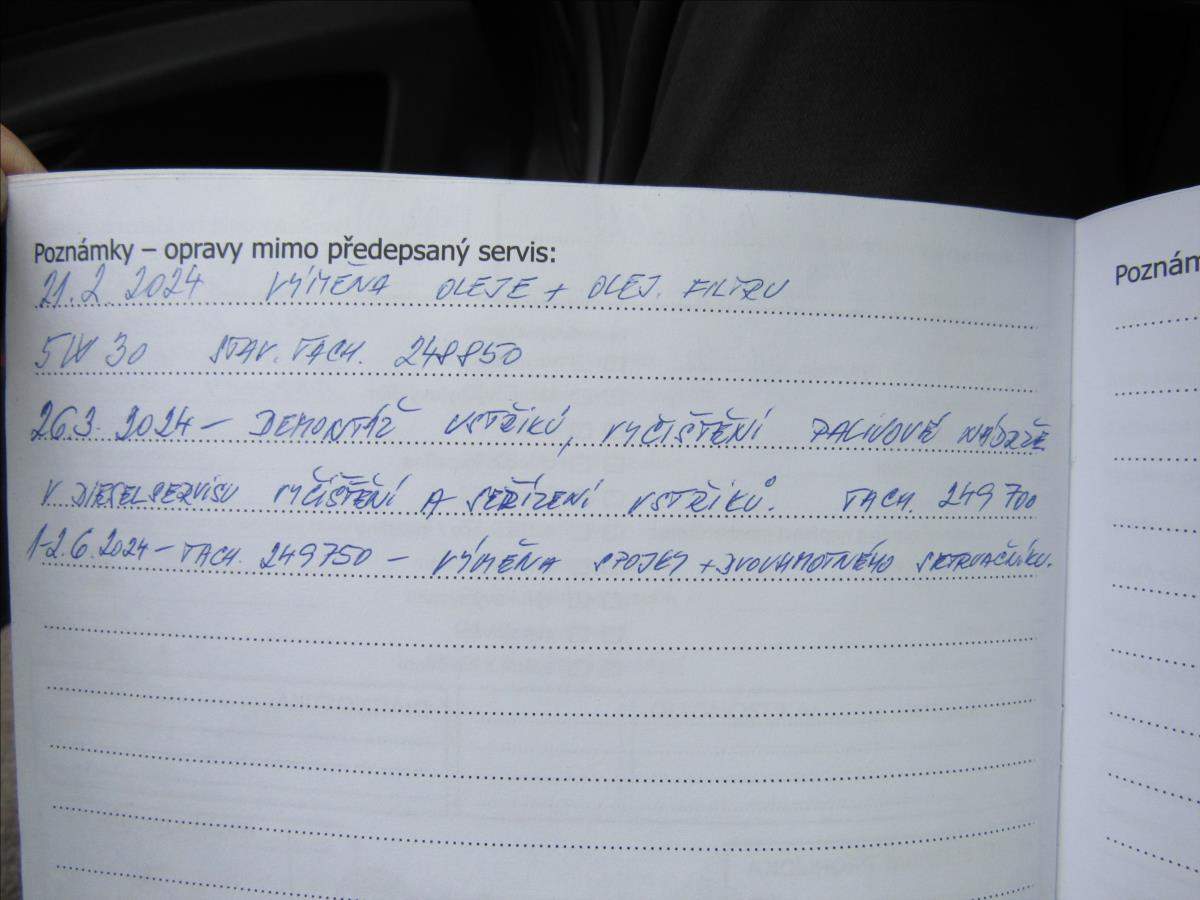 Poznámky – opravy mimo předepsaný servis:
21.2.2024 VÝMĚNA OLEJE + OLEJ. FILTRU
5W30 STAV. TACH. 248850
26.3.2024 – DEMONTÁŽ VSTŘIKŮ, VYČIŠTĚNÍ PALIVOVÉ NÁDRŽE
V DIESELSERVISU VYČIŠTĚNÍ A SEŘÍZENÍ VSTŘIKŮ. TACH. 249700
1-2.6.2024 – TACH. 249750 – VÝMĚNA SPOJKY + DVOUHMOTNÉHO SETRVAČNÍKU.
Poznám